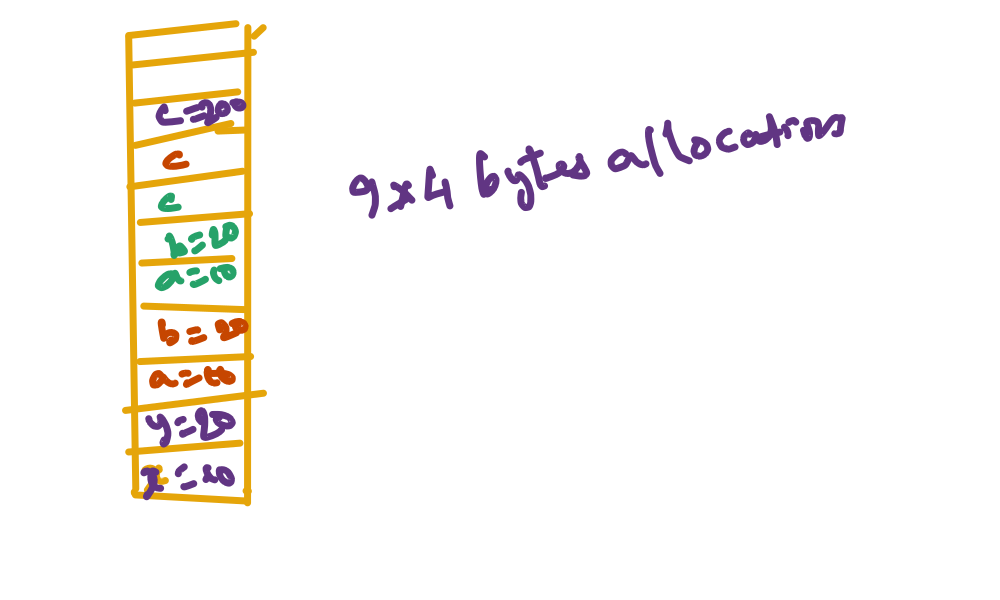 c=200
c
c
b=20
a=10
b=20
a=10
y=20
x=10
9x4 bytes allocations